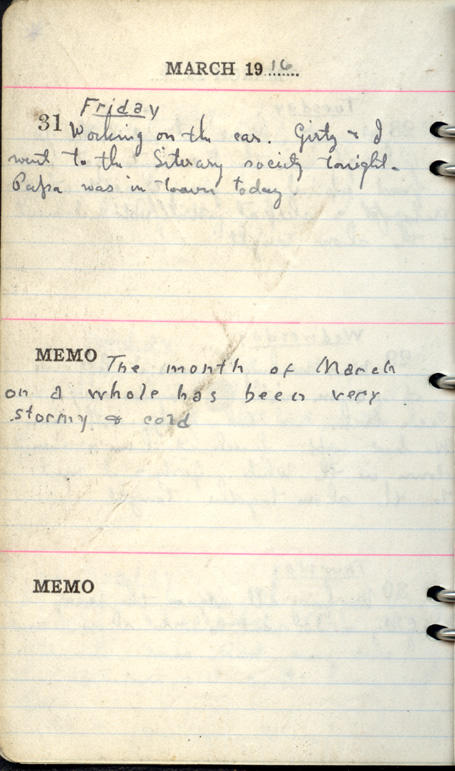 MARCH 1916
Friday
31 Working on the car. Girty & I
went to the Literary society tonight.
Papa was in town today
MEMO The month of March
on a whole has been very
stormy & cold
MEMO